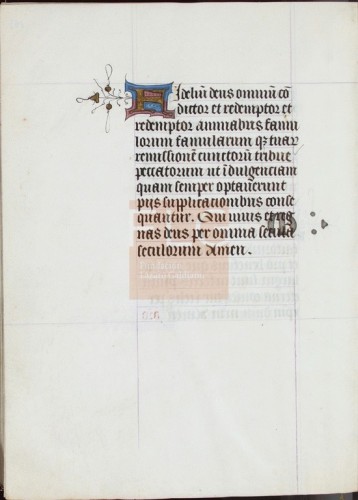 Fideliū deus omniū cō
ditor et redemptor et
redemptor animabus famu
lorum famularum q̄ tuar
remissionē cunctorū tribue
peccatorum ut īdulgenciam
quam semper optauerunt
pijs supplicationibus conse
quantur. Qui uiuis et reg
nas deus per omnia secula
seculorum Amen.